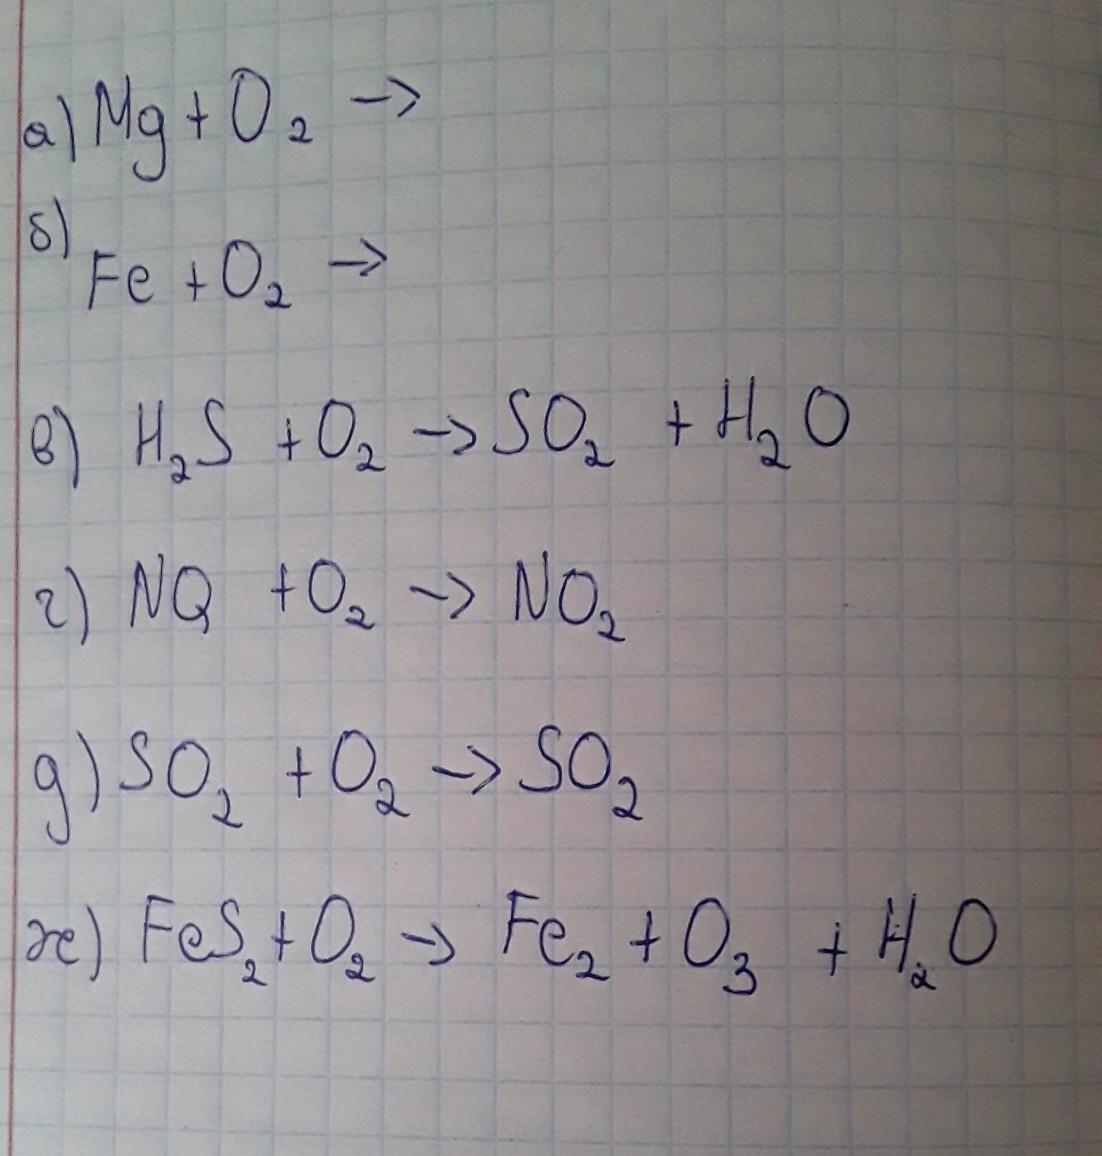 а) Mg + O₂ →
б)
Fe + O₂ →
в) H₂S + O₂ → SO₂ + H₂O
г) NO + O₂ → NO₂
д) SO₂ + O₂ → SO₂
ж) FeS₂ + O₂ → Fe₂ + O₃ + H₂O